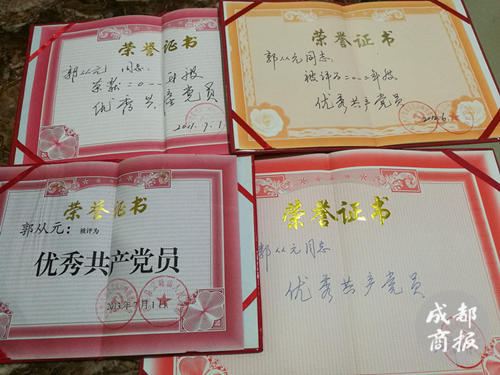 荣誉证书
郭从元 同志:
荣获二〇一
优秀共产党员
2011.7.1
荣誉证书
郭从元同志:
被评为二〇
优秀共产党员
荣誉证书
郭从元:被评为
优秀共产党员
2013年7月1日
荣誉证书
郭从元同志
优秀共产党员
成都
商报